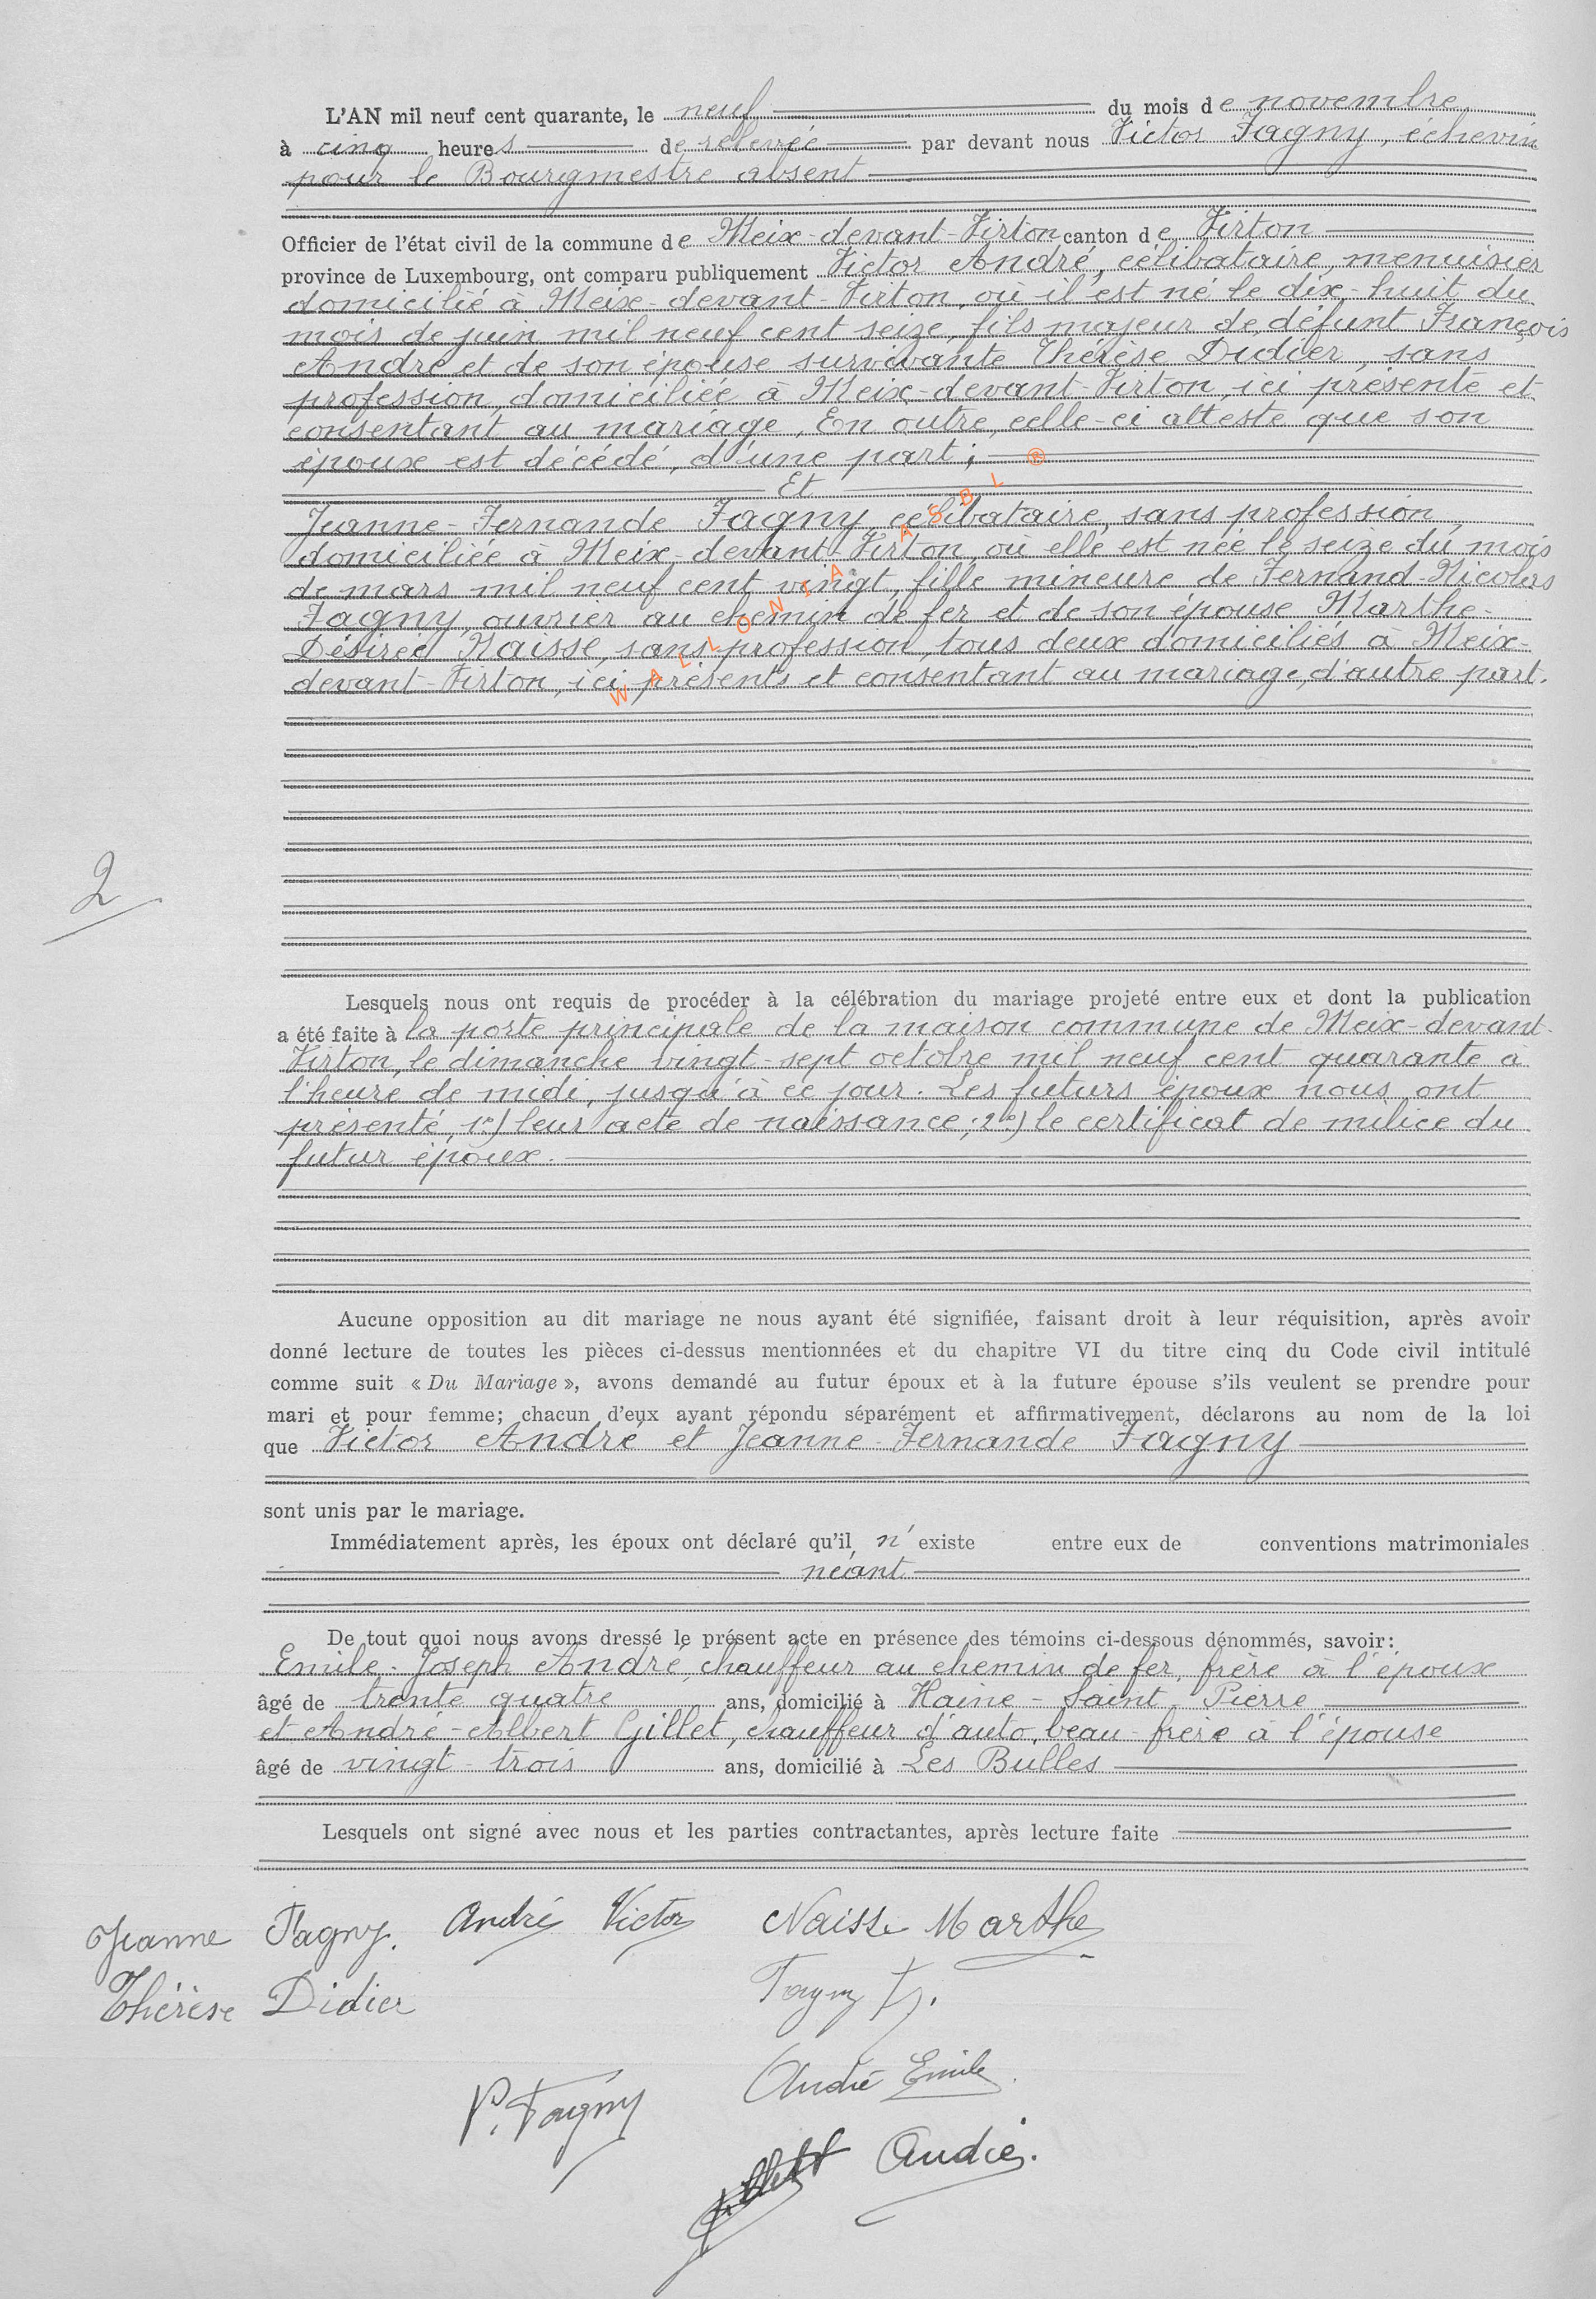 L'AN mil neuf cent quarante, le neuf du mois de novembre,
à cinq heures de relevée par devant nous Victor Fagny, échevin
pour le Bourgmestre absent
Officier de l'état civil de la commune de Meix-devant-Virton canton de Virton
province de Luxembourg, ont comparu publiquement Victor André, célibataire, menuisier
domicilié à Meix-devant-Virton, où il est né le dix-huit du
mois de juin mil neuf cent seize, fils majeur de défunt François
André et de son épouse survivante Thérèse Didier, sans
profession, domiciliée à Meix-devant-Virton, ici présente et
consentant au mariage. En outre, celle-ci atteste que son
époux est décédé, d'une part;
Et
Jeanne-Fernande Fagny, célibataire, sans profession,
domiciliée à Meix-devant-Virton, où elle est née le seize du mois
de mars mil neuf cent vingt, fille mineure de Fernand-Nicolas
Fagny, ouvrier au chemin de fer et de son épouse Marthe-
Désirée Naisse, sans profession, tous deux domiciliés à Meix-
devant-Virton, ici présents et consentant au mariage, d'autre part.
WALLONIA ASBL ®
2
Lesquels nous ont requis de procéder à la célébration du mariage projeté entre eux et dont la publication
a été faite à la porte principale de la maison commune de Meix-devant-
Virton, le dimanche vingt-sept octobre mil neuf cent quarante à
l'heure de midi, jusqu'à ce jour. Les futurs époux nous ont
présenté, 1°) leur acte de naissance; 2°) le certificat de milice du
futur époux.
Aucune opposition au dit mariage ne nous ayant été signifiée, faisant droit à leur réquisition, après avoir
donné lecture de toutes les pièces ci-dessus mentionnées et du chapitre VI du titre cinq du Code civil intitulé
comme suit « Du Mariage », avons demandé au futur époux et à la future épouse s'ils veulent se prendre pour
mari et pour femme; chacun d'eux ayant répondu séparément et affirmativement, déclarons au nom de la loi
que Victor André et Jeanne-Fernande Fagny
sont unis par le mariage.
Immédiatement après, les époux ont déclaré qu'il n'existe entre eux de conventions matrimoniales
néant
De tout quoi nous avons dressé le présent acte en présence des témoins ci-dessous dénommés, savoir:
Emile-Joseph André, chauffeur au chemin de fer, frère à l'époux
âgé de trente quatre ans, domicilié à Haine-Saint-Pierre
et André-Albert Gillet, chauffeur d'auto, beau-frère à l'épouse
âgé de vingt-trois ans, domicilié à Les Bulles
Lesquels ont signé avec nous et les parties contractantes, après lecture faite
Jeanne Fagny. André Victor Naisse Marthe
Thérèse Didier Fagny F.
André Emile
V. Fagny
Gillet André.